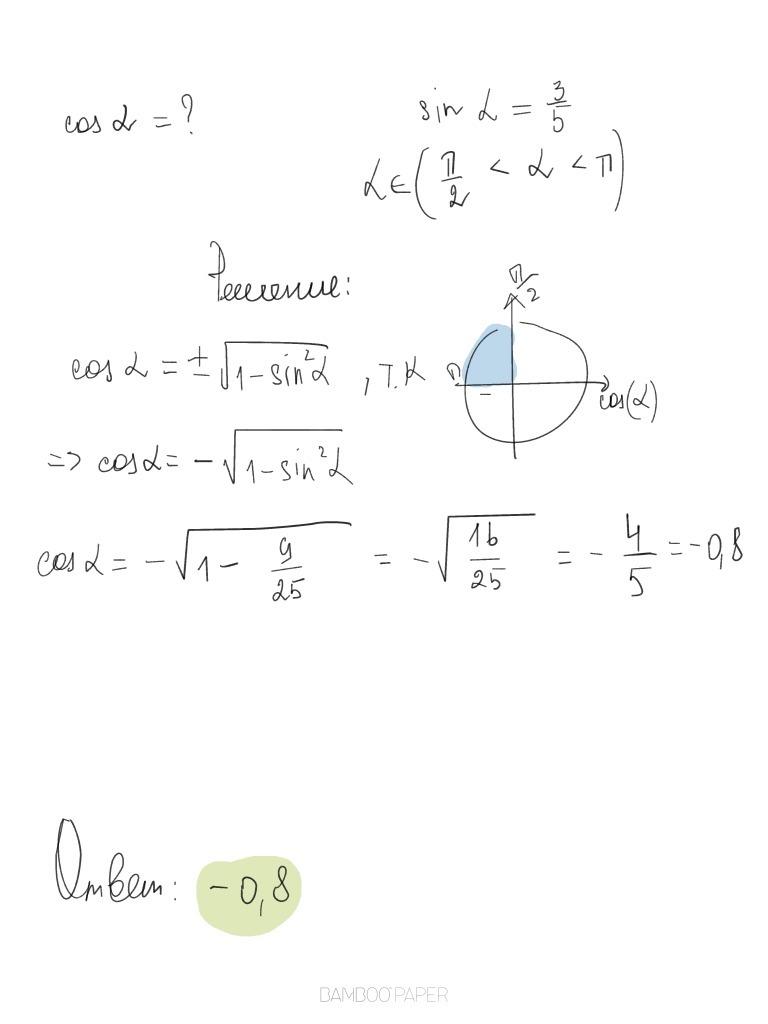 cos α = ?
sin α = 3/5
α∈(π/2 < α < π)
Решение:
π/2
cos α = ± √(1-sin²α) , т.к
π
–
cos(α)
=> cos α = - √(1-sin²α)
cos α = - √(1 - 9/25) = - √(16/25) = - 4/5 = -0,8
Ответ: -0,8
BAMBOO PAPER